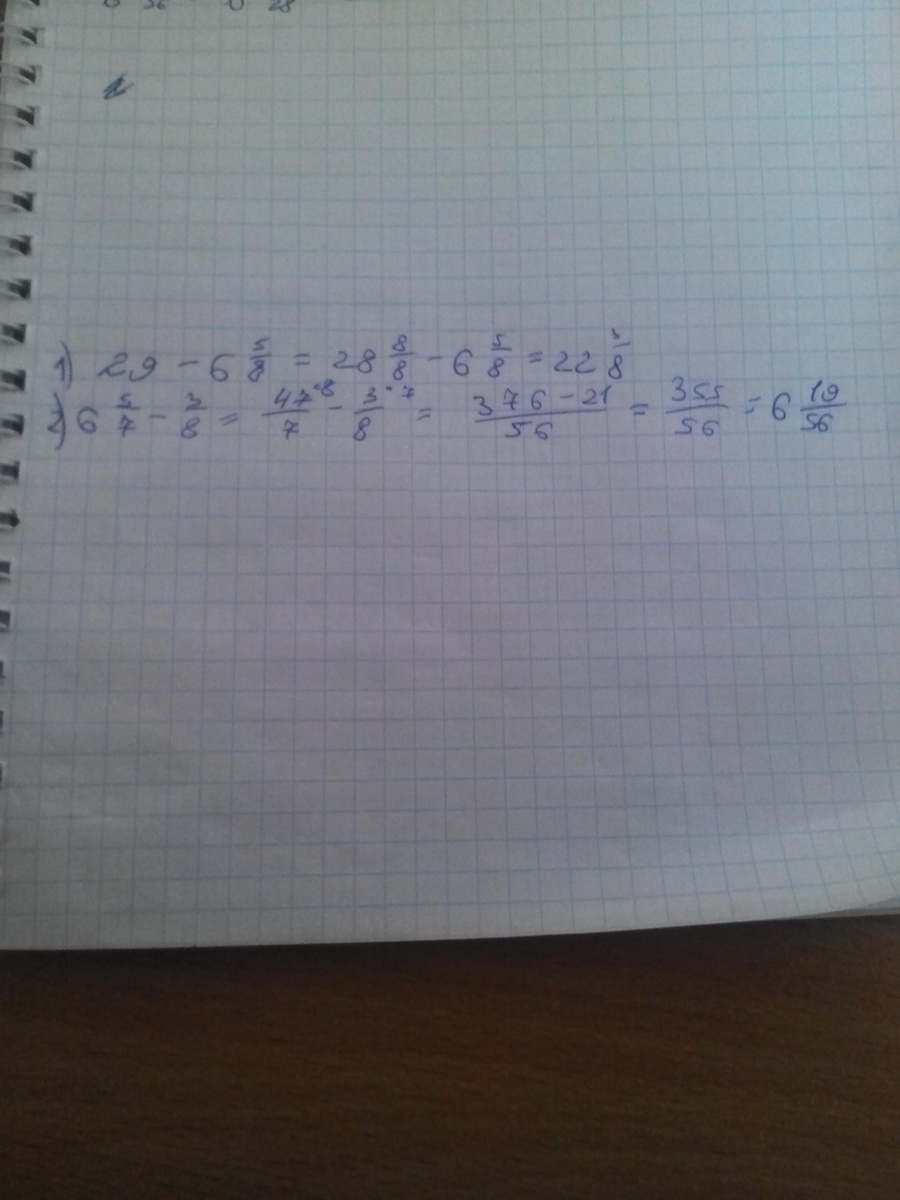 1) 29 - 6 5/8 = 28 8/8 - 6 5/8 = 22 3/8
2) 6 5/7 - 3/8 = 47·8/7 - 3·7/8 = 376-21/56 = 355/56 = 6 19/56